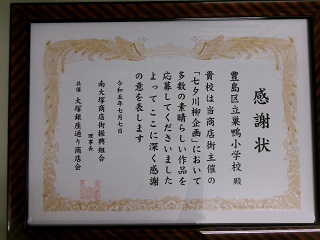 感謝状
豊島区立巣鴨小学校 殿
貴校は当商店街主催の
「七夕川柳企画」において
多数の素晴らしい作品を
応募してくださいました
よってここに深く感謝
の意を表します
令和五年七月七日
南大塚商店街振興組合
理事長
共催 大塚銀座通り商店会